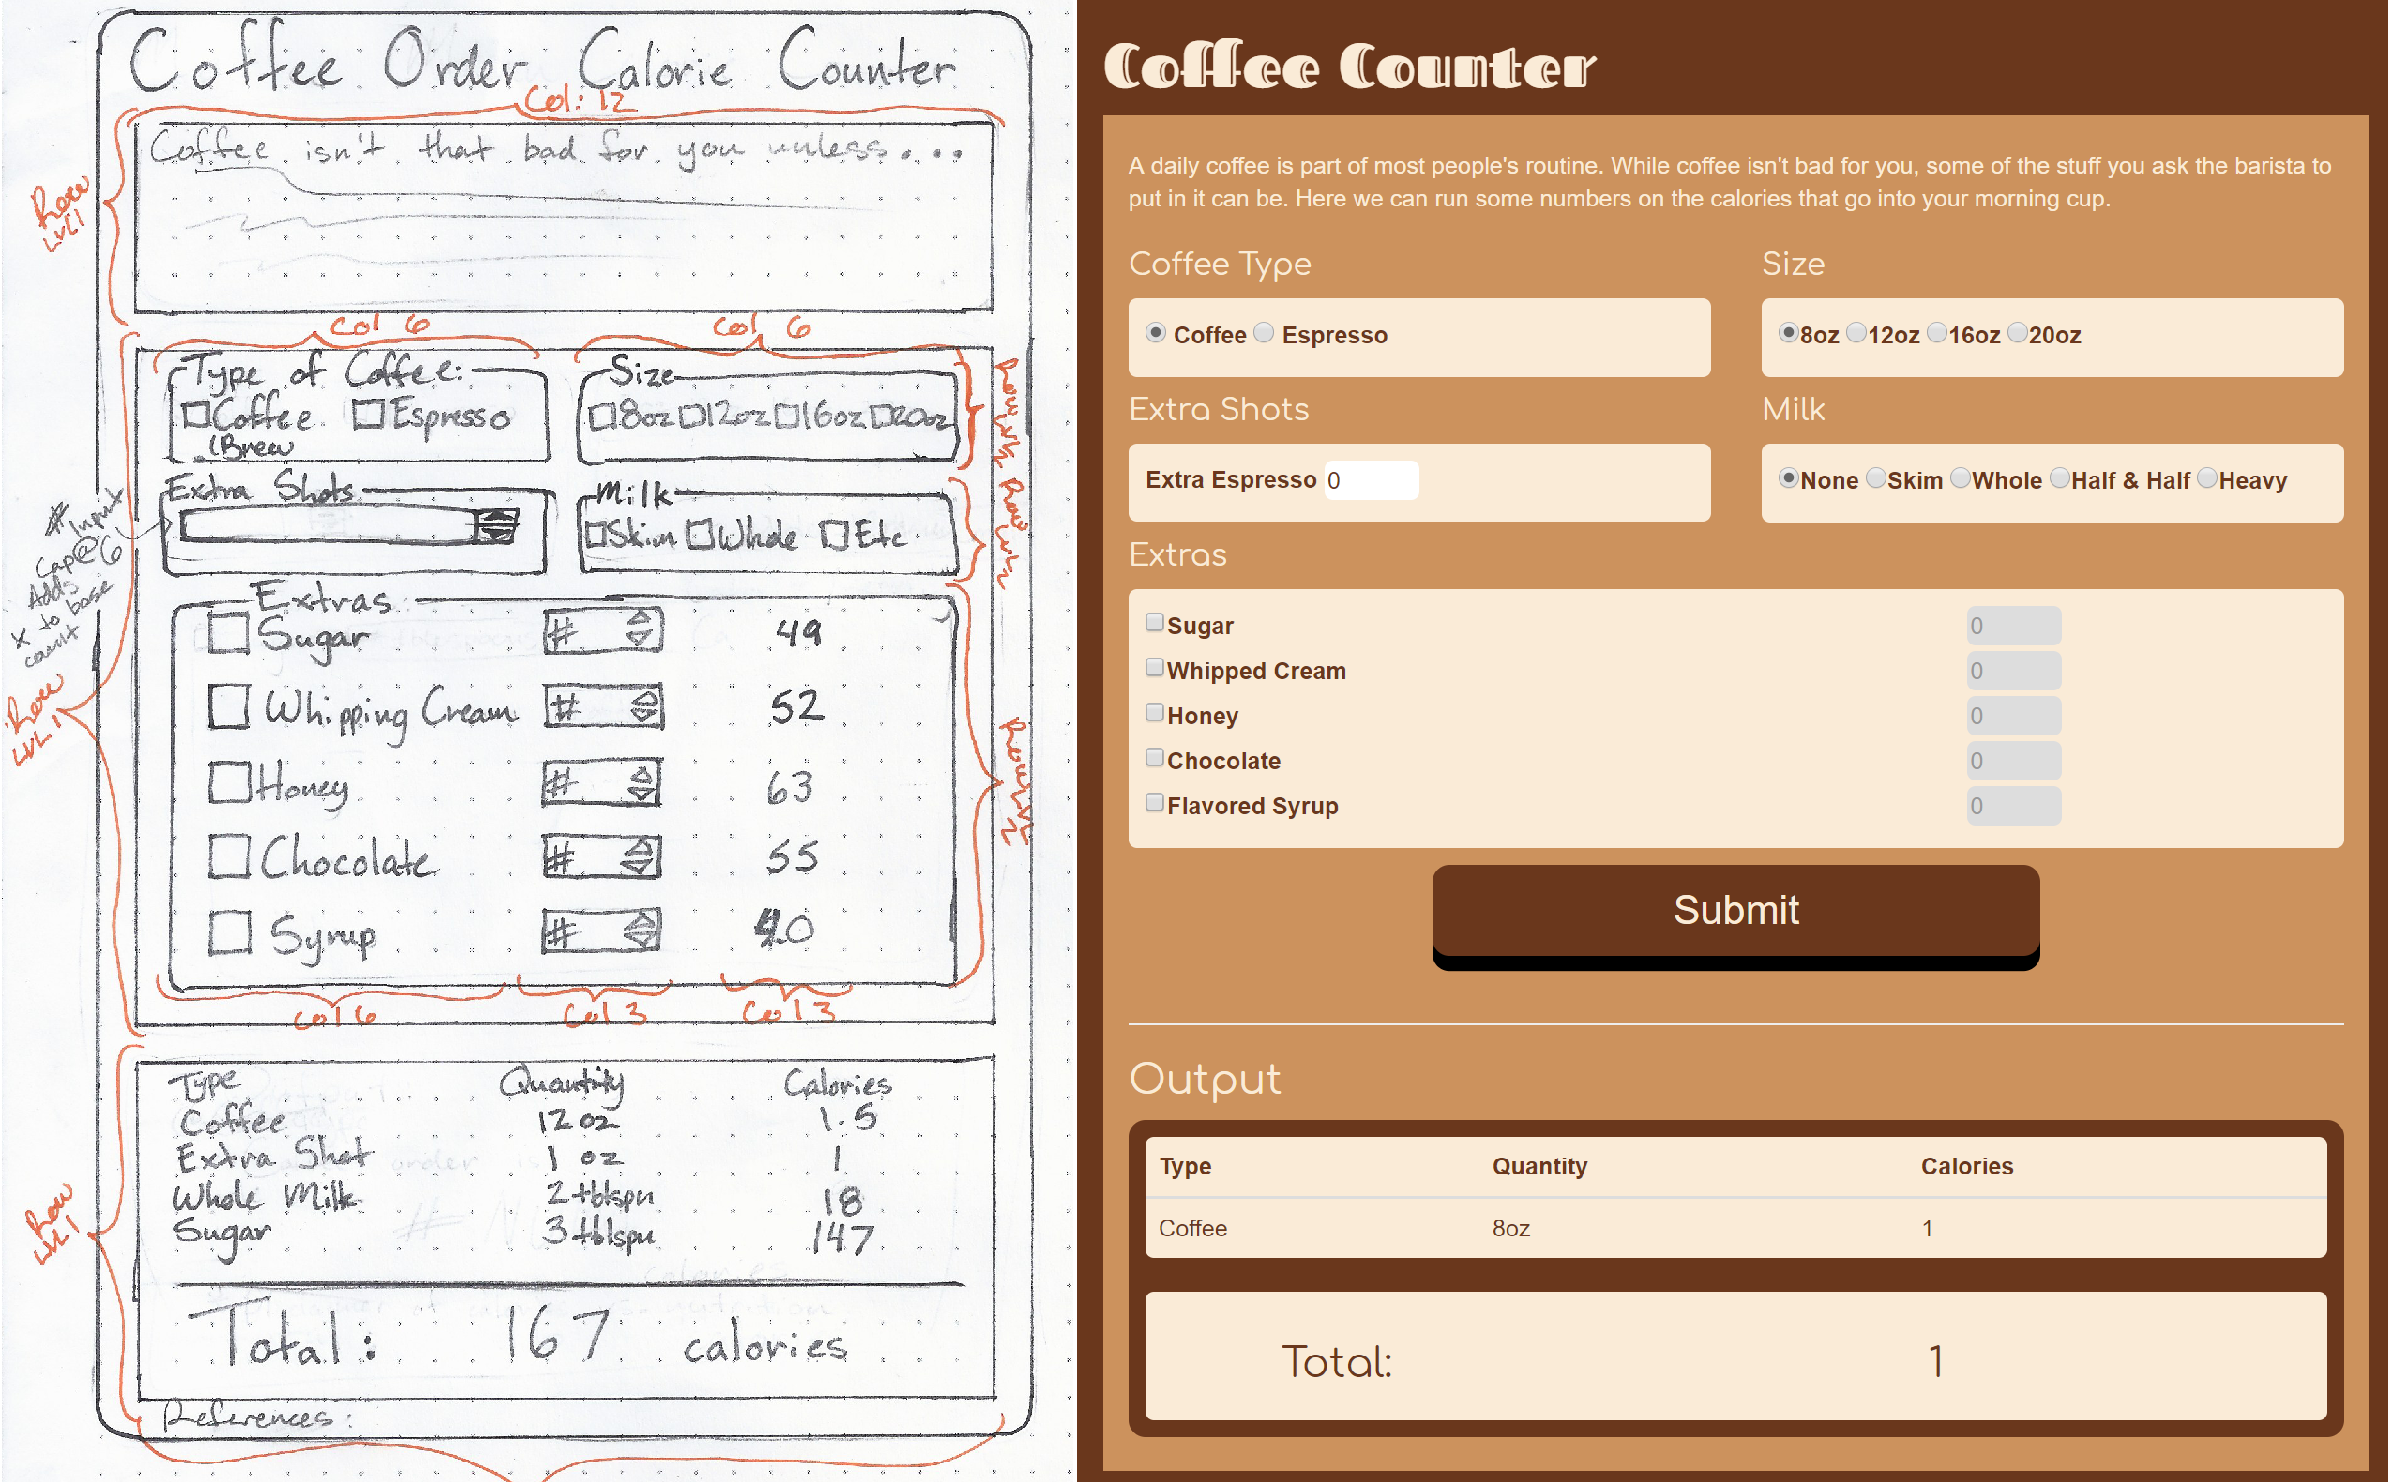 Coffee Order Calorie Counter
Col: 12
Row
LVL1
Coffee isn't that bad for you unless....
Col 6
Col 6
Type of Coffee:
Coffee
Espresso
(Brew
Size
8oz 12oz 16oz 20oz
Row LVL 2
Extra Shots
# Input
Cap@6
Adds
x to base
count
Milk
Skim Whole Etc
Row LVL 2
Row
LVL 1
Extras
Sugar # 49
Whipping Cream # 52
Honey # 63
Chocolate # 55
Syrup # 40
Row LVL 2
Col 6
Col 3
Col 3
Row
LVL1
Type Quantity Calories
Coffee 12 oz 1.5
Extra Shot 1 oz 1
Whole Milk 2 tblspn 18
Sugar 3 tblspn 147
Total: 167 calories
References:
Coffee Counter
A daily coffee is part of most people's routine. While coffee isn't bad for you, some of the stuff you ask the barista to
put in it can be. Here we can run some numbers on the calories that go into your morning cup.
Coffee Type
Coffee Espresso
Size
8oz 12oz 16oz 20oz
Extra Shots
Extra Espresso 0
Milk
None Skim Whole Half & Half Heavy
Extras
Sugar 0
Whipped Cream 0
Honey 0
Chocolate 0
Flavored Syrup 0
Submit
Output
Type Quantity Calories
Coffee 8oz 1
Total: 1